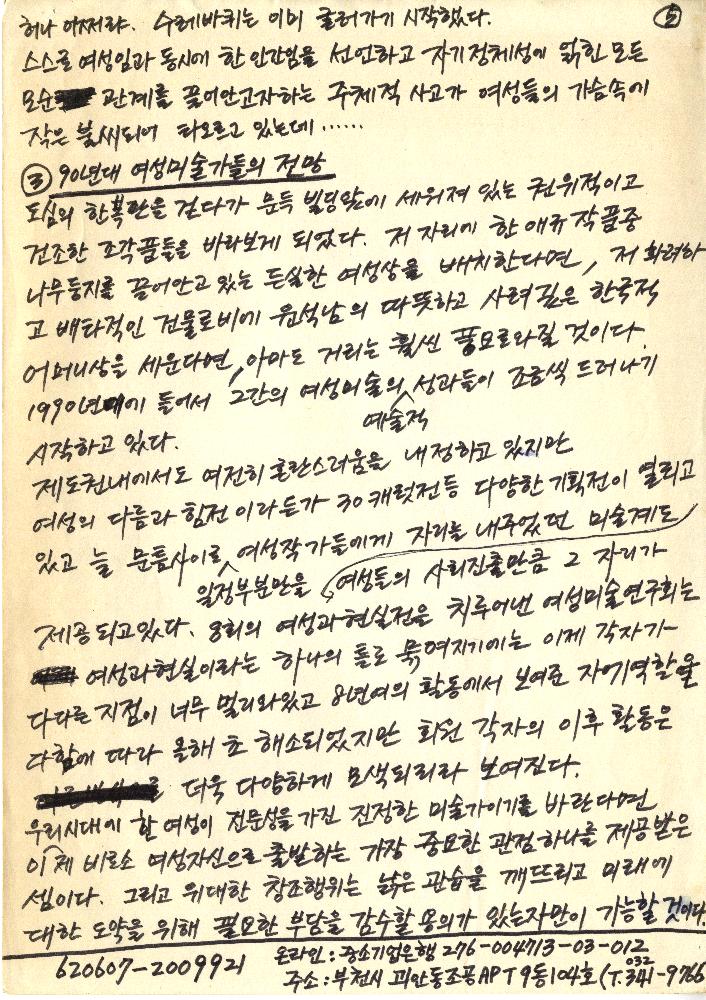 ⑤
허나 어쩌랴. 수레바퀴는 이미 굴러가기 시작했다.
스스로 여성임과 동시에 한 인간임을 선언하고 자기정체성에 얽힌 모든
모순 관계를 끌어안고자하는 주체적 사고가 여성들의 가슴속에
작은 불씨되어 타오르고 있는데……
③ 90년대 여성미술가들의 전망
도심의 한복판을 걷다가 문득 빌딩앞에 세워져 있는 권위적이고
건조한 조각품들을 바라보게 되었다. 저 자리에 한애규 작품중
나무둥지를 끌어안고 있는 든실한 여성상을 배치한다면, 저 화려하
고 배타적인 건물로비에 윤석남의 따뜻하고 사려깊은 한국적
어머니상을 세운다면, 아마도 거리는 훨씬 풍요로와질 것이다.
1990년대에 들어서 그간의 여성미술의 성과들이 조금씩 드러나기
예술적
시작하고 있다.
제도권내에서도 여전히 혼란스러움을 내정하고 있지만
여성의 다름과 힘전 이라든가 30캐럿전등 다양한 기획전이 열리고
있고 늘 문틈사이로 여성작가들에게 자리를 내주었던 미술계도
일정부분만을 여성들의 사회진출만큼 그 자리가
제공되고있다. 8회의 여성과현실전을 치루어낸 여성미술연구회는
여성과현실이라는 하나의 틀로 묶여지기에는 이제 각자가
다다른 지점이 너무 멀리와있고 8년여의 활동에서 보여준 자기역할을
다함에 따라 올해 초 해소되었지만 회원 각자의 이후 활동은
더욱 다양하게 모색되리라 보여진다.
우리시대에 한 여성이 전문성을 가진 진정한 미술가이기를 바란다면
이제 비로소 여성자신으로 출발하는 가장 중요한 관점하나를 제공받은
셈이다. 그리고 위대한 창조행위는 낡은 관습을 깨뜨리고 미래에
대한 도약을 위해 필요한 부담을 감수할 용의가 있는자만이 가능할 것이다.
620607-2009921 온라인: 중소기업은행 276-004713-03-012
주소: 부천시 괴안동조공APT 9동104호 (T. 032 341-9766